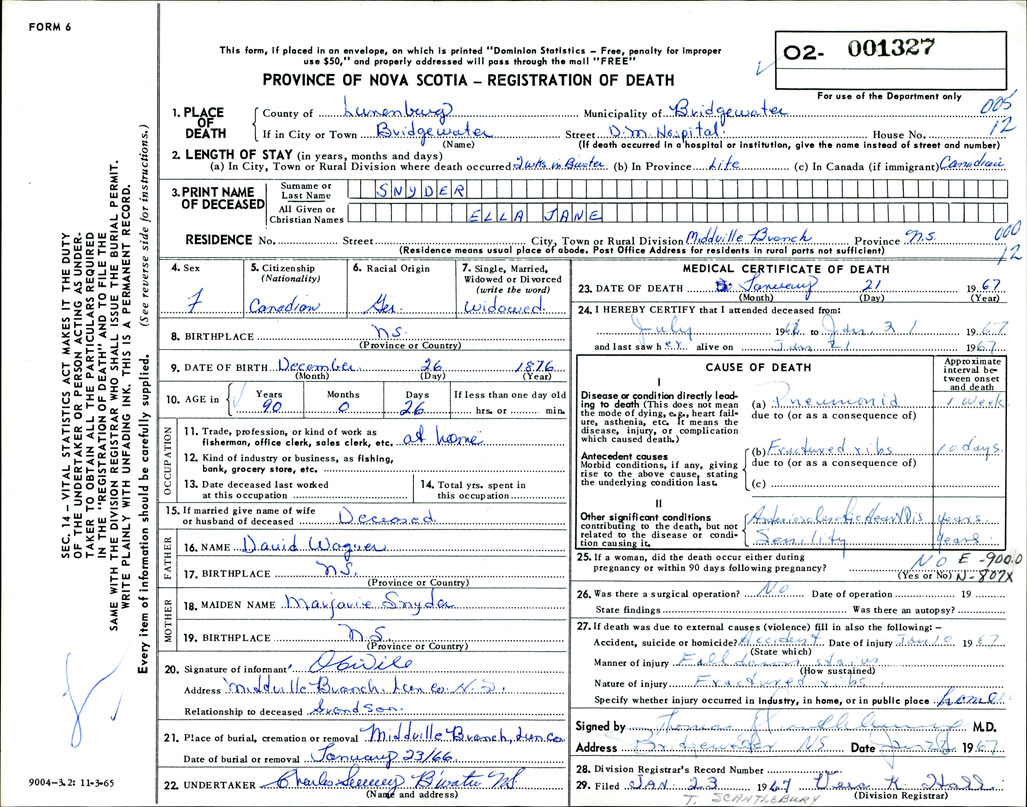 FORM 6
This form, if placed in an envelope, on which is printed "Dominion Statistics – Free, penalty for improper
use $50," and properly addressed will pass through the mail "FREE"
O2- 001327
PROVINCE OF NOVA SCOTIA – REGISTRATION OF DEATH
For use of the Department only
005
12
1. PLACE OF DEATH County of Lunenburg Municipality of Bridgewater
If in City or Town Bridgewater Street D.M. Hospital House No.
(Name) (If death occurred in a hospital or institution, give the name instead of street and number)
2. LENGTH OF STAY (in years, months and days)
(a) In City, Town or Rural Division where death occurred 2 wks in (b) In Province Life (c) In Canada (if immigrant) Canadian
3. PRINT NAME OF DECEASED
Surname or Last Name SNYDER
All Given or Christian Names ELLA JANE
RESIDENCE No. Street City, Town or Rural Division Middville Branch Province N.S.
(Residence means usual place of abode. Post Office Address for residents in rural parts not sufficient)
000
12
4. Sex F
5. Citizenship (Nationality) Canadian
6. Racial Origin Ger.
7. Single, Married, Widowed or Divorced (write the word) Widowed
8. BIRTHPLACE N.S.
(Province or Country)
9. DATE OF BIRTH December 26 1876
(Month) (Day) (Year)
10. AGE in Years 90 Months 0 Days 26 If less than one day old hrs. or min.
OCCUPATION
11. Trade, profession, or kind of work as
fisherman, office clerk, sales clerk, etc. at home
12. Kind of industry or business, as fishing,
bank, grocery store, etc.
13. Date deceased last worked
at this occupation
14. Total yrs. spent in
this occupation
15. If married give name of wife
or husband of deceased Deceased
FATHER
16. NAME David Wagner
17. BIRTHPLACE N.S.
(Province or Country)
MOTHER
18. MAIDEN NAME Marjorie Snyder
19. BIRTHPLACE N.S.
(Province or Country)
20. Signature of informant
Address Middville Branch, Lun Co. N.S.
Relationship to deceased Grandson
21. Place of burial, cremation or removal Middville Branch, Lun Co
Date of burial or removal January 23/66
22. UNDERTAKER Charles
(Name and address)
MEDICAL CERTIFICATE OF DEATH
23. DATE OF DEATH January 21 1967
(Month) (Day) (Year)
24. I HEREBY CERTIFY that I attended deceased from:
July 196 to Jan. 21 1967
and last saw her alive on Jan 21 1967
CAUSE OF DEATH
Approximate interval between onset and death
I
Disease or condition directly leading to death (This does not mean
the mode of dying, e.g., heart failure, asthenia, etc. It means the
disease, injury, or complication
which caused death.)
(a) Pneumonia 1 week
due to (or as a consequence of)
Antecedent causes
Morbid conditions, if any, giving
rise to the above cause, stating
the underlying condition last.
(b) Fractured ribs 10 days.
due to (or as a consequence of)
(c)
II
Other significant conditions
contributing to the death, but not
related to the disease or condition causing it.
Arteriosclerotic Heart Dis years.
Senility years.
25. If a woman, did the death occur either during
pregnancy or within 90 days following pregnancy? No
(Yes or No)
E-900.0
N-807X
26. Was there a surgical operation? No Date of operation 19
State findings Was there an autopsy?
27. If death was due to external causes (violence) fill in also the following: –
Accident, suicide or homicide? Accident Date of injury Jan 10 1967
(State which)
Manner of injury Fall down stairs
(How sustained)
Nature of injury Fractured ribs.
Specify whether injury occurred in industry, in home, or in public place home
Signed by Thomas M.D.
Address Bridgewater NS Date 1967
28. Division Registrar's Record Number
29. Filed JAN. 23 1967 Vera K. Hall
(Division Registrar)
T. SCANTLEBURY
SEC. 14 – VITAL STATISTICS ACT MAKES IT THE DUTY
OF THE UNDERTAKER OR PERSON ACTING AS UNDER-
TAKER TO OBTAIN ALL THE PARTICULARS REQUIRED
IN THE "REGISTRATION OF DEATH" AND TO FILE THE
SAME WITH THE DIVISION REGISTRAR WHO SHALL ISSUE THE BURIAL PERMIT.
WRITE PLAINLY WITH UNFADING INK. THIS IS A PERMANENT RECORD.
Every item of information should be carefully supplied. (See reverse side for instructions.)
9004-3.2: 11-3-65